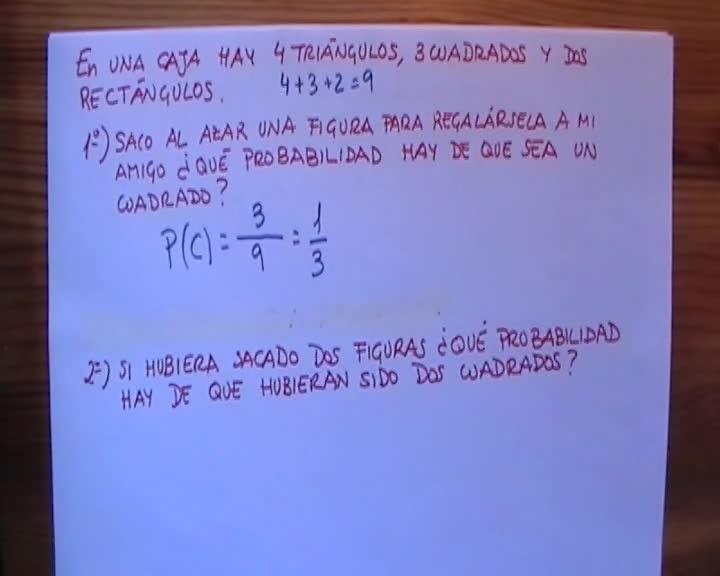 En UNA CAJA HAY 4 TRIÁNGULOS, 3 CUADRADOS Y DOS
RECTÁNGULOS. 4+3+2=9
1º) SACO AL AZAR UNA FIGURA PARA REGALÁRSELA A MI
AMIGO ¿QUÉ PROBABILIDAD HAY DE QUE SEA UN
CUADRADO?
P(C) = 3/9 = 1/3
2º) SI HUBIERA SACADO DOS FIGURAS ¿QUÉ PROBABILIDAD
HAY DE QUE HUBIERAN SIDO DOS CUADRADOS?